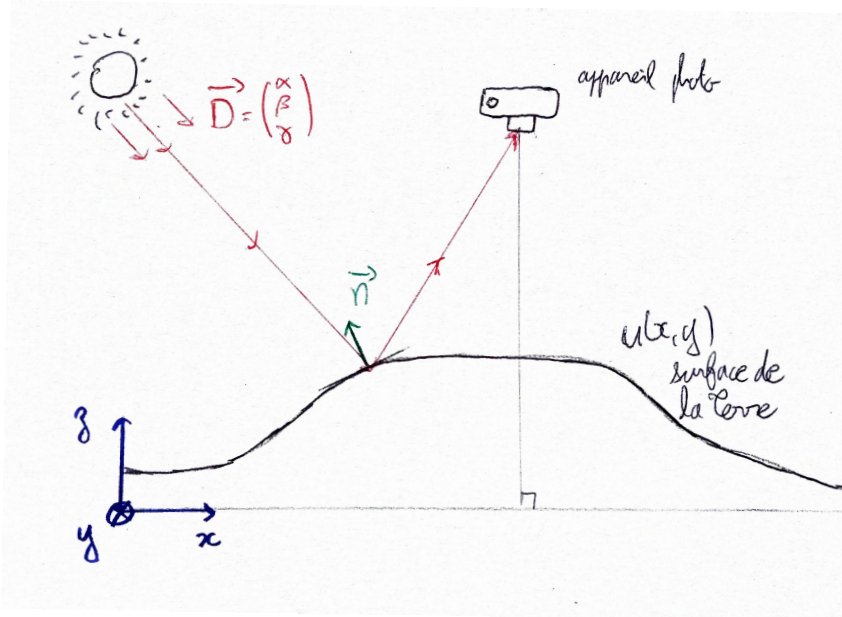 appareil photo
D = (α
β
γ)
n
u(x,y)
surface de
la Terre
z
y
x